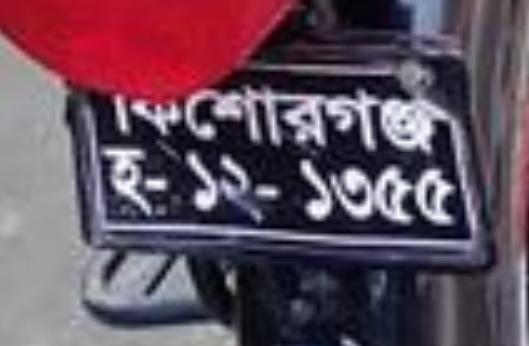 কিশোরগঞ্জ
হ- ১২- ১৩৫৫